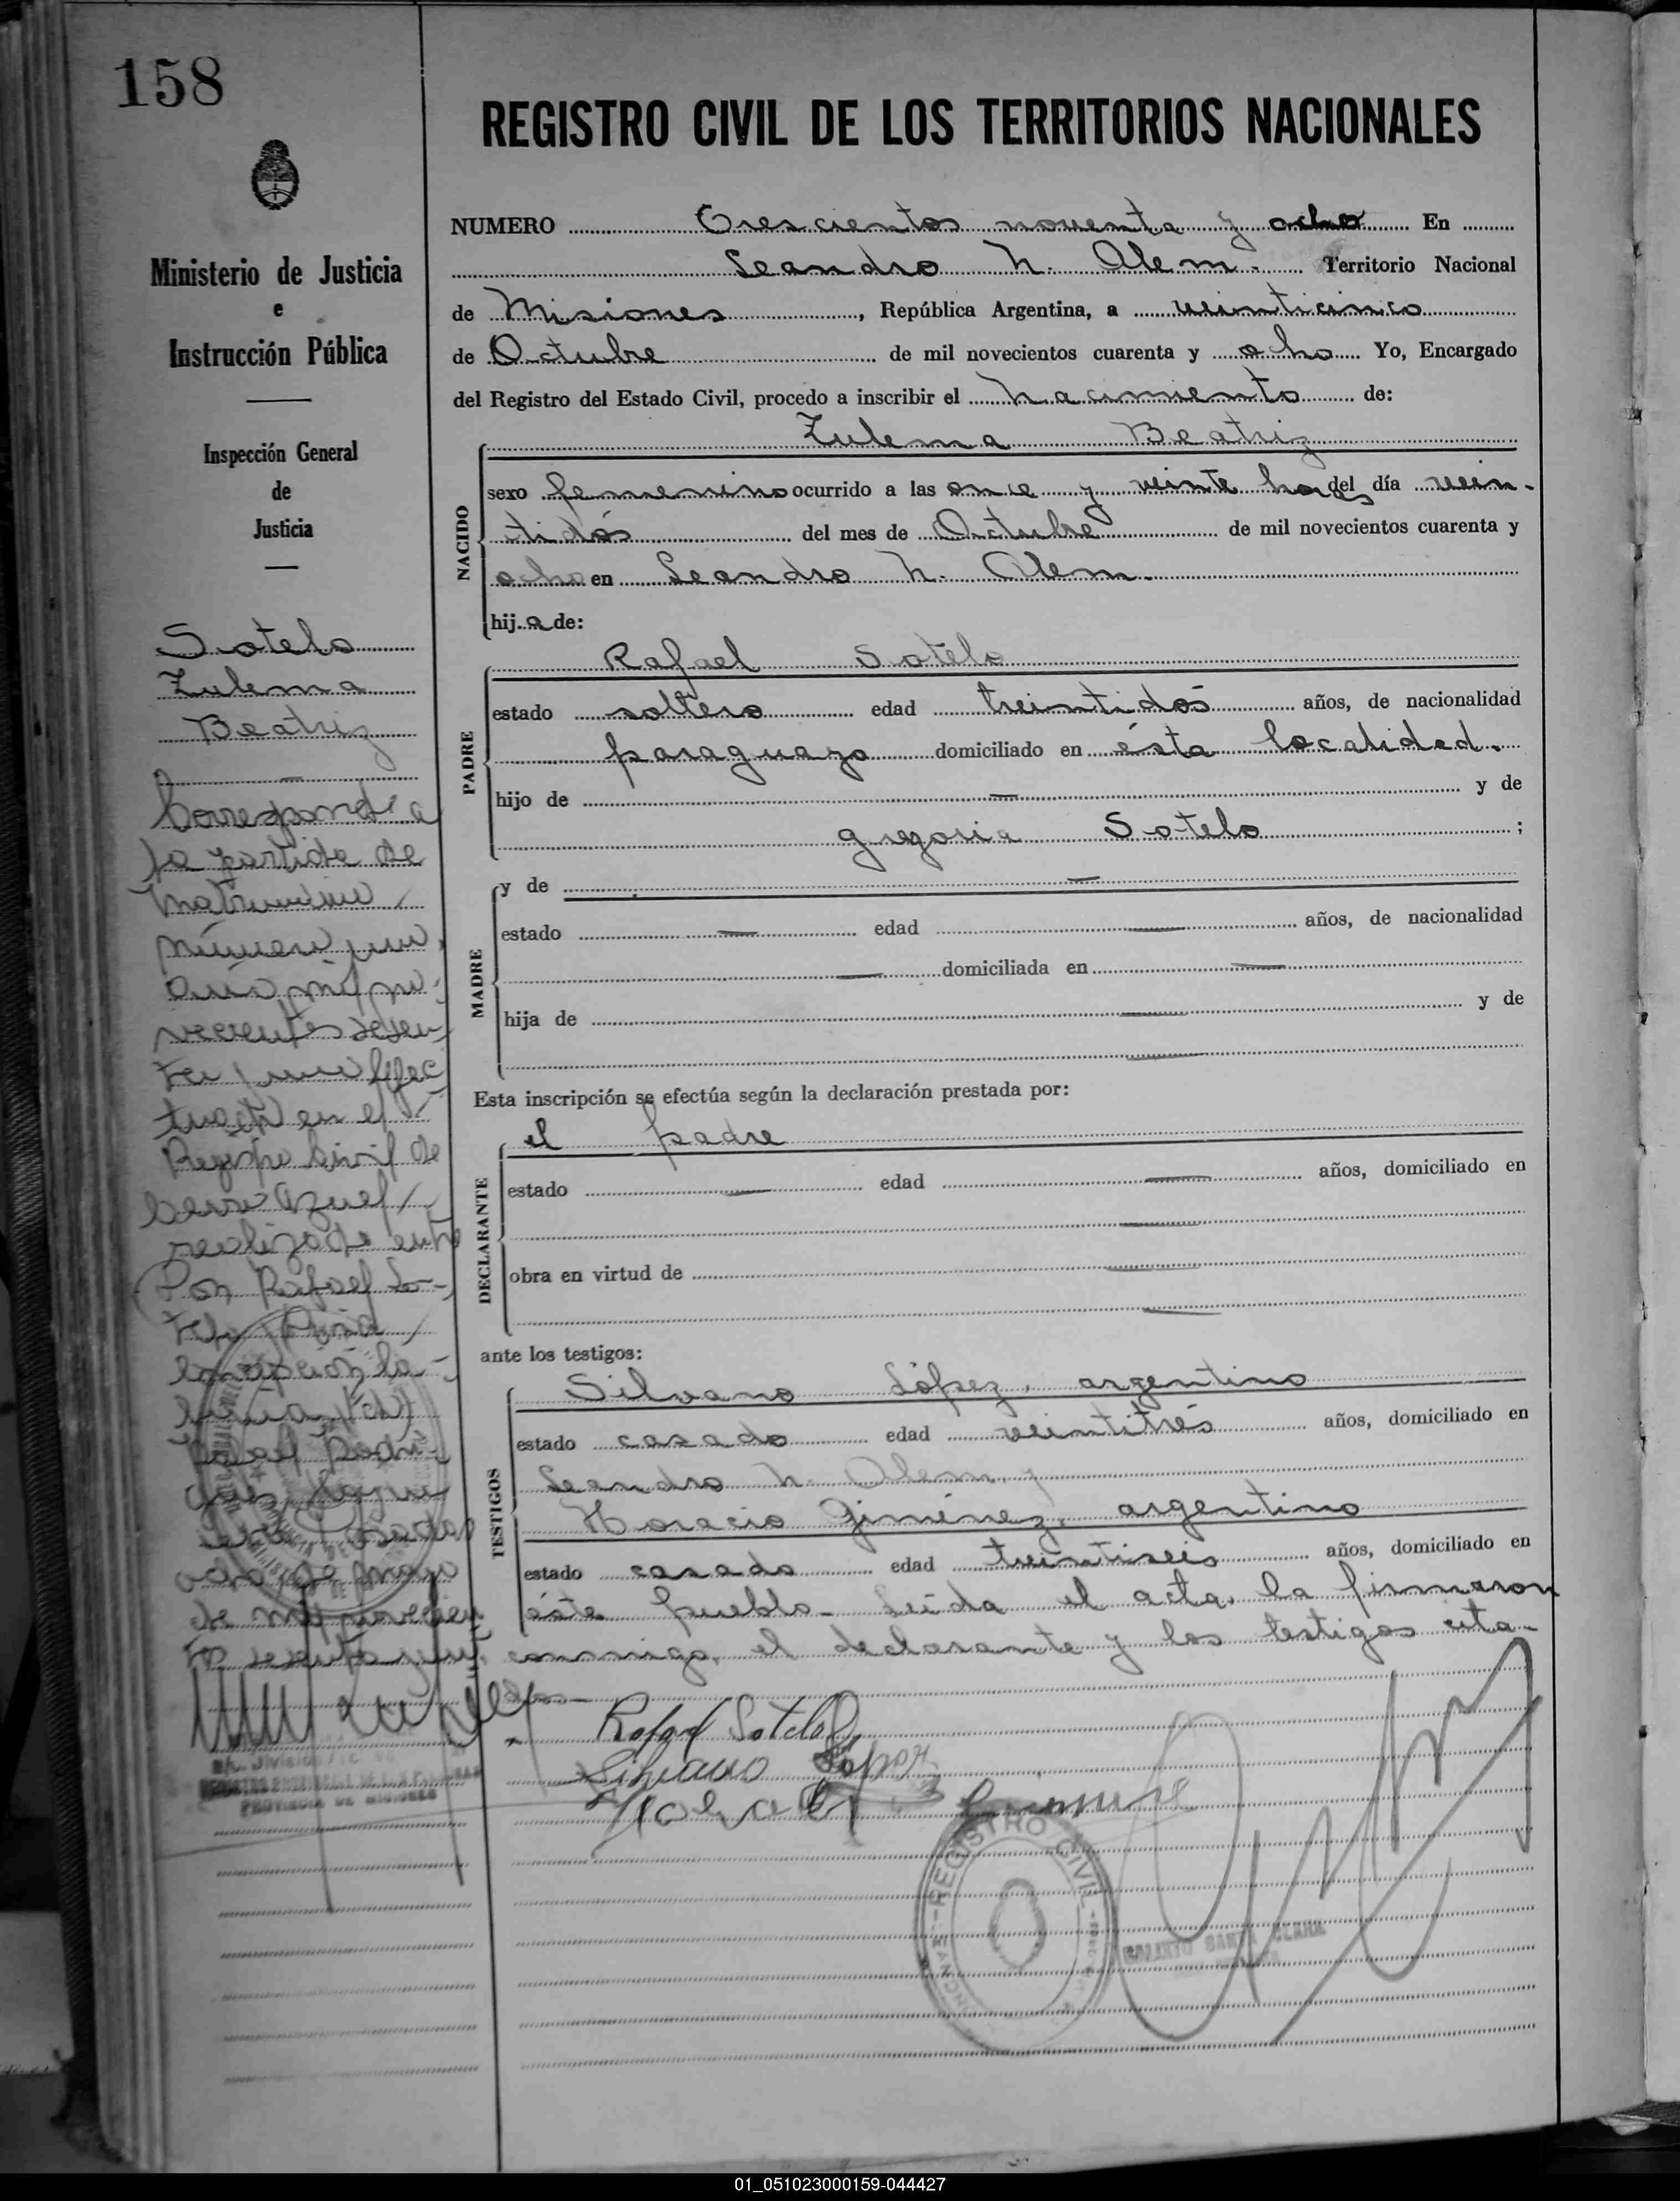 158
REGISTRO CIVIL DE LOS TERRITORIOS NACIONALES
NUMERO Trescientos noventa y ocho En
Leandro N. Alem. Territorio Nacional
de Misiones, República Argentina, a veinticinco
de Octubre de mil novecientos cuarenta y ocho Yo, Encargado
del Registro del Estado Civil, procedo a inscribir el nacimiento de:
Zulema Beatriz
NACIDO
sexo femenino ocurrido a las once y veinte horas del día vein-
tidós del mes de Octubre de mil novecientos cuarenta y
ocho en Leandro N. Alem.
hija de:
Rafael Sotelo
PADRE
estado soltero edad treintidós años, de nacionalidad
paraguayo domiciliado en ésta localidad.
hijo de — y de
Gregoria Sotelo ;
MADRE
y de —
estado — edad — años, de nacionalidad
— domiciliada en —
hija de — y de
—
Esta inscripción se efectúa según la declaración prestada por:
el padre
DECLARANTE
estado — edad — años, domiciliado en
—
obra en virtud de —
—
ante los testigos:
Silvano López, argentino
TESTIGOS
estado casado edad veintitrés años, domiciliado en
Leandro N. Alem y
Horacio Giménez, argentino
estado casado edad treintiseis años, domiciliado en
éste pueblo. Leída el acta, la firmaron
conmigo, el declarante y los testigos cita-
dos.—
Rafael Sotelo
Silvano López
Giménez
REGISTRO CIVIL
CALIXTO SANTA CLARA
Ministerio de Justicia
e
Instrucción Pública
Inspección General
de
Justicia
Sotelo
Zulema
Beatriz
—
Corresponde a
la partida de
matrimonio
número uno,
año mil no-
vecientos sesen-
ta y uno efec
tuada en el
Registro Civil de
Cerro Azul
realizada entre
Don Rafael So-
telo
de mayo
de mil novecien
to sesenta y uno.
PROVINCIA DE MISIONES
01_051023000159-044427